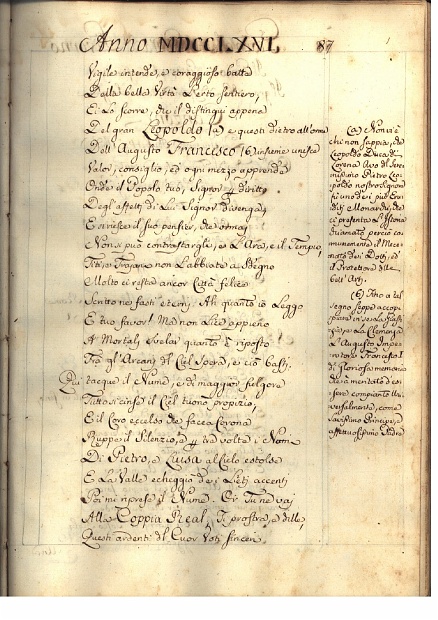 Anno MDCCLXVI.
87
Vigile intende, e coraggioso batta
Della bella Virtù l'erto sentiero,
Ei Lo scorre, che il distingui appena
Del gran Leopoldo (a) e questi dietro all'orme
Dell'Augusto Francesco (b) insieme unisce
Valor, consiglio, ed ogni mezzo apprende
Onde il Popolo tuo, Signor diritto
Degl'affetti di Lui Signor divenga,
E
il suo pensier, che ormai
Non si può contrastargli, e L'Ara, e il Tempio,
non L'abbiate a sdegno
Molto ci resta ancor Città felice
ne' fasti eterni. Ah quanto io Leggo
E tuo favor! Ma non Lice appieno
A' Mortali svelar quanto è riposto
Tra gl'Arcani del Ciel spera, e ciò basti.
Qui tacque il Nume, e di maggior fulgore
Tutto si cinse il Ciel tuonò propizio,
E il Coro eccelso che facea Corona
Ruppe il silenzio, e tre volte i Nomi
Di Pietro, e Luisa al Cielo estolse
E La Valle echeggiò de' Lieti accenti
Poi mi riprese il Nume. Or Tu ne vai
Alla Coppia Real, Ti prostra, e dille,
Questi ardenti del Cuor Voti sinceri
(a) Non v'è
che non sappia, che
Leopoldo Duca di
Lorena Avo del Sere
nissimo Pietro Leo
poldo nostro Signore
fù uno de' più
Monarchi, che
ci presenta L'Istoria
chiamato perciò co-
munemente il Mece-
nate de' Dotti, ed
il Protettore delle
bell'Arti.
(b) Fino a tal
segno seppe accop
piare in se La Giusti
zia, e La Clemenza
L'Augusto Impe
ratore Francesco I
di Gloriosa memoria
che à meritato d'es
sere compianto Uni
versalmente, come
Principe, e
affettuosissimo Padre